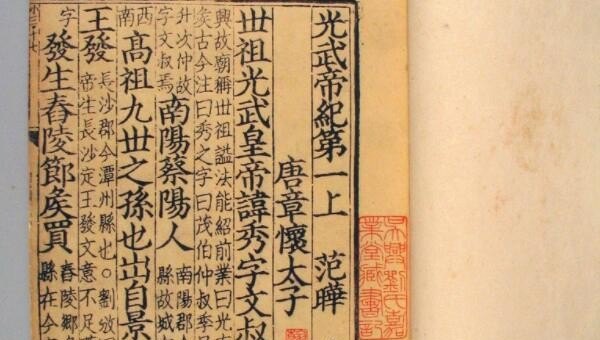 光武帝紀第一上 范曄
唐章懷太子
世祖光武皇帝諱秀字文叔
興故廟稱世祖謚法能紹前業曰光
矦古今注曰秀之字曰茂伯仲叔季
升次仲故
字文叔焉
南陽蔡陽人
南陽郡
縣故城
西
南
高祖九世之孫也出自景
王發
長沙郡今潭州縣也○劉攽
帝生長沙定王發文意不足
字
發生舂陵節矦買
舂陵鄉
縣在今
吳興劉氏嘉
業堂藏書記